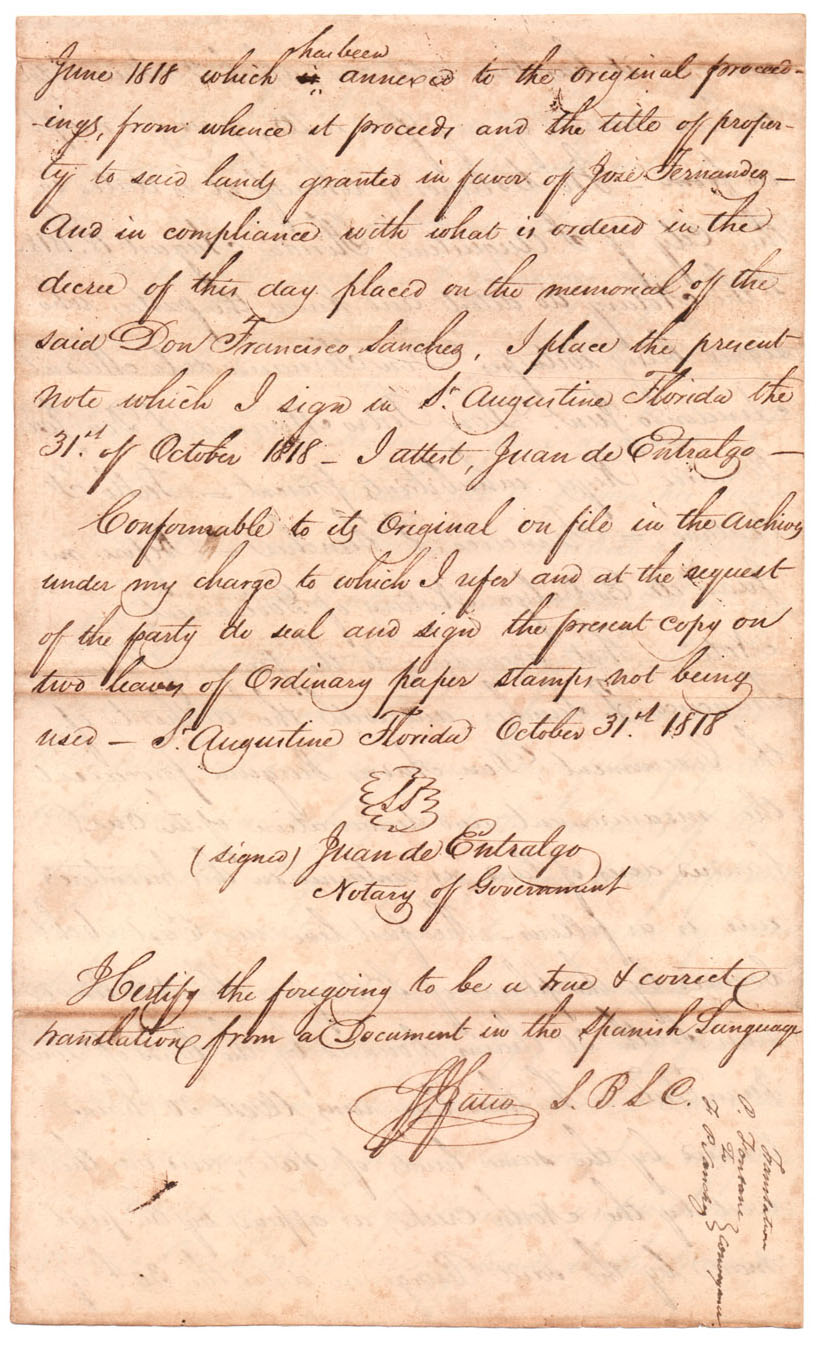 has been
June 1818 which is annexed to the original proceed-
-ings, from whence it proceeds and the title of proper-
ty to said lands granted in favor of Jose Fernandez -
And in compliance with what is ordered in the
decree of this day placed on the memorial of the
said Don Francisco Sanchez, I place the present
note which I sign in St. Augustine Florida the
31st of October 1818 - I attest, Juan de Entralgo -
Conformable to its Original on file in the Archives
under my charge to which I refer and at the request
of the party do seal and sign the present copy on
two leaves of Ordinary paper stamps not being
used - St. Augustine Florida October 31st 1818
LS
(signed) Juan de Entralgo
Notary of Government
I Certify the foregoing to be a true & correct
translation from a Document in the Spanish Language
S. B. L. C.
Translation
P. Fontane
To
F R Sanchez
Conveyance